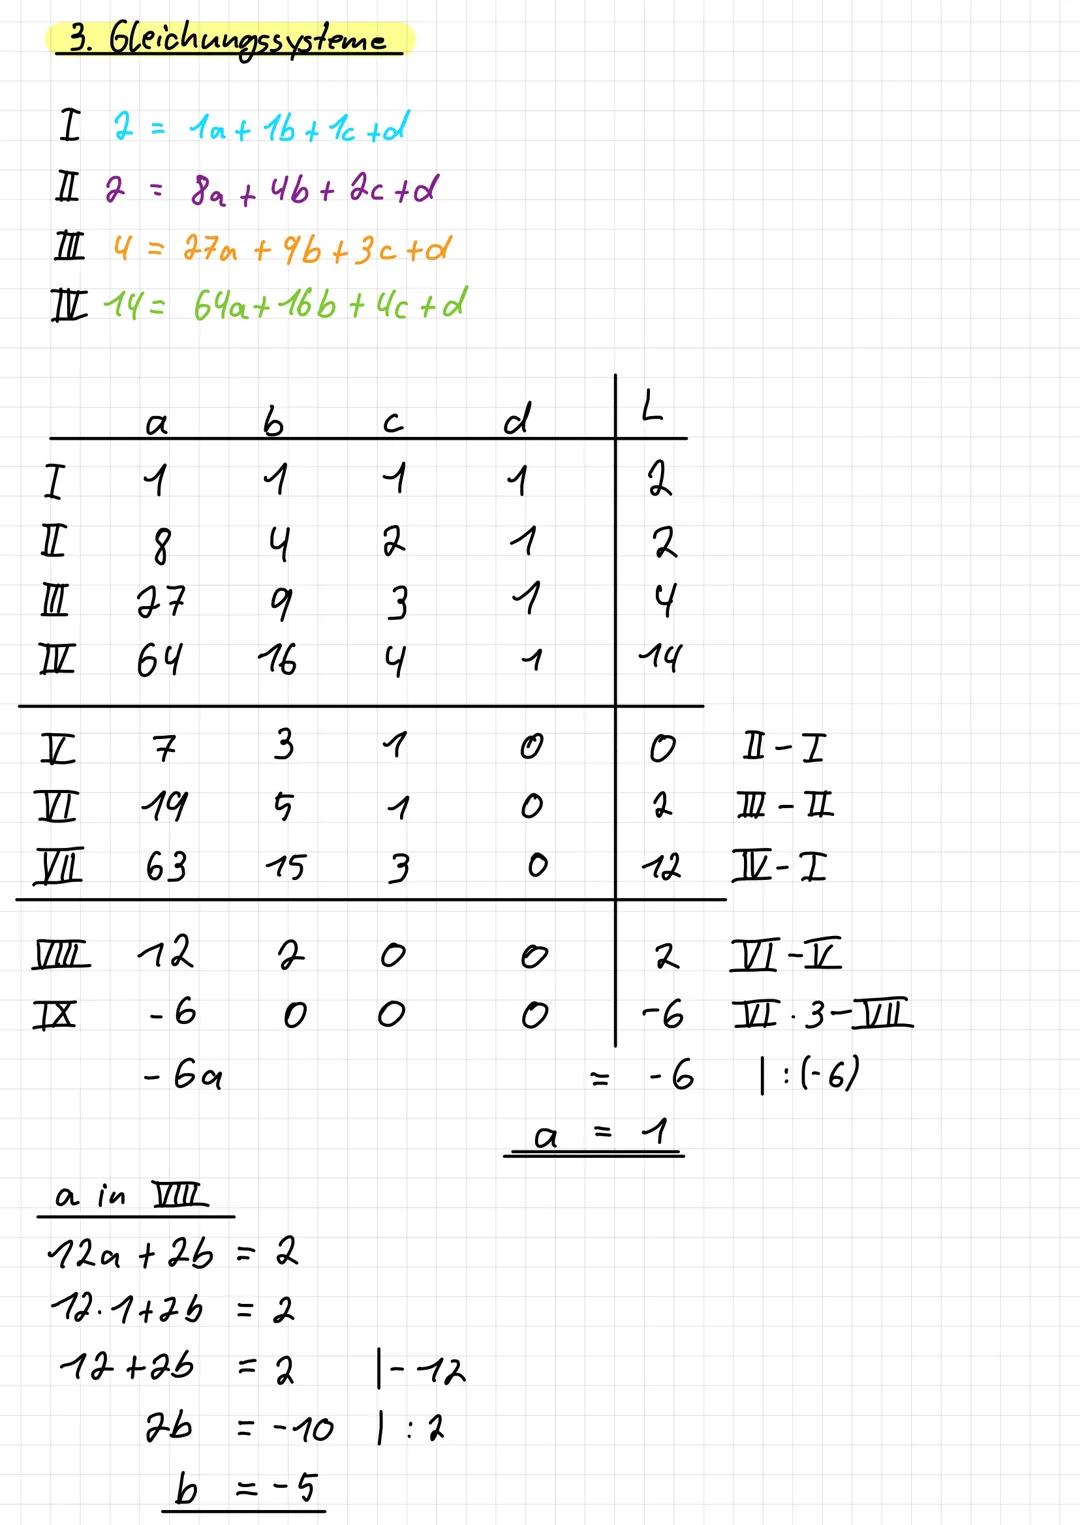 3. Gleichungssysteme
I 2 = 1a + 1b + 1c + d
II 2 = 8a + 4b + 2c + d
III 4 = 27a + 9b + 3c + d
IV 14 = 64a + 16b + 4c + d
a b c d L
I 1 1 1 1 2
II 8 4 2 1 2
III 27 9 3 1 4
IV 64 16 4 1 14
V 7 3 1 0 0 II - I
VI 19 5 1 0 2 III - II
VII 63 15 3 0 12 IV - I
VIII 12 2 0 0 2 VI - V
IX -6 0 0 0 -6 VI · 3 - VII
-6a = -6 | : (-6)
a = 1
a in VIII
12a + 2b = 2
12 · 1 + 2b = 2
12 + 2b = 2 | - 12
2b = -10 | : 2
b = -5